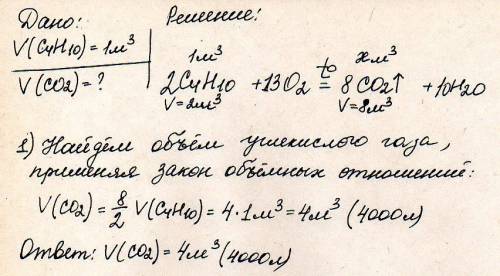 Дано:
V(C4H10) = 1м³
V(CO2) = ?
Решение:
1м³ xм³
2C4H10 + 13O2 t° = 8CO2↑ + 10H2O
V=2м³ V=8м³
1) Найдём объём углекислого газа,
применяя закон объёмных отношений:
V(CO2) = 8/2 V(C4H10) = 4·1м³ = 4м³ (4000л)
Ответ: V(CO2) = 4м³ (4000л)